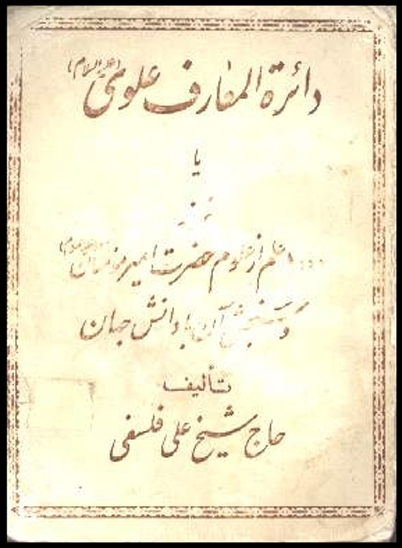 دائرة المعارف علوی (علیه السلام)
یا
علم از علوم حضرت امیر مؤمنان
و سنجش آن با دانش جهان
تألیف
حاج شیخ علی فلسفی